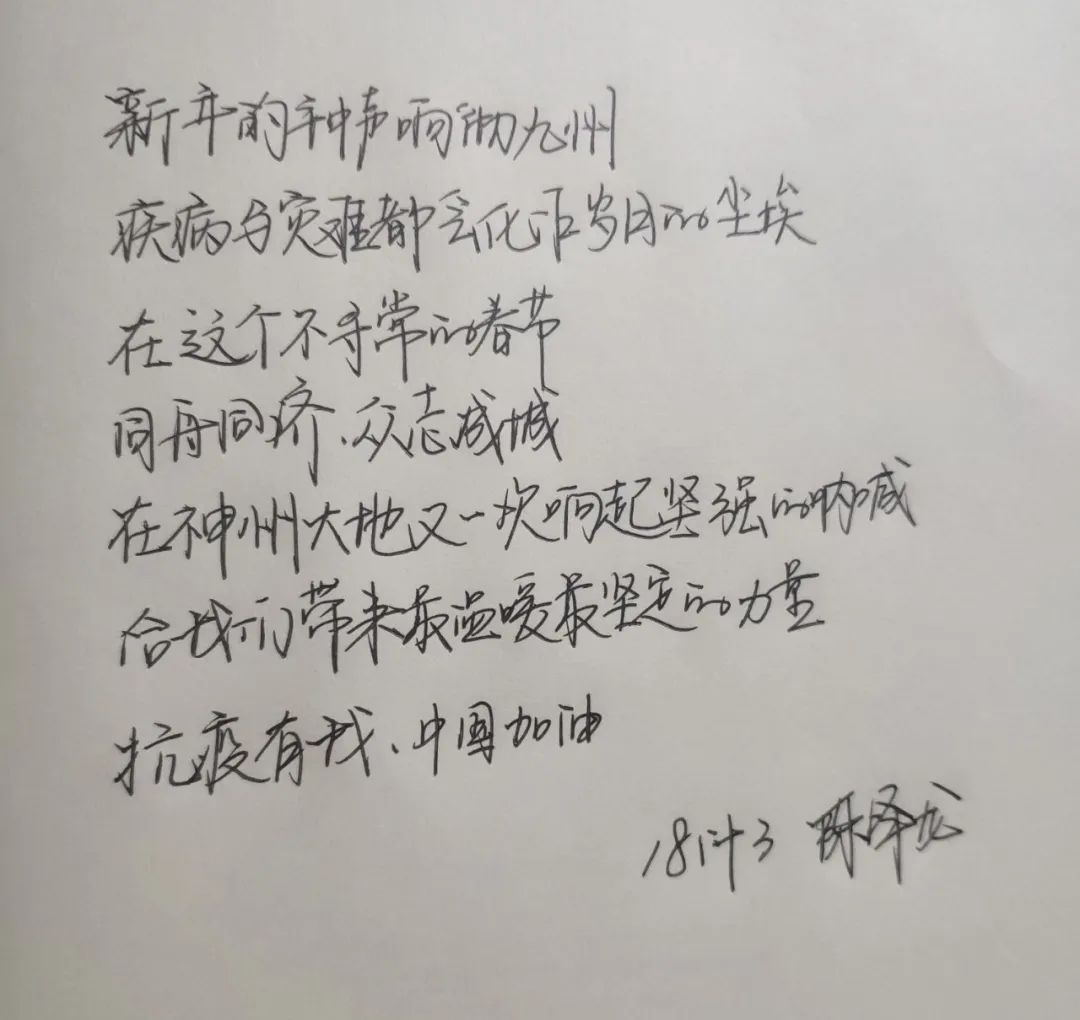 新年的钟声响彻九州
疾病与灾难都会化作岁月的尘埃
在这个不寻常的春节
同舟同济、众志成城
在神州大地又一次响起坚强的呐喊
给我们带来最温暖最坚定的力量
抗疫有我、中国加油
18计3 陈泽龙